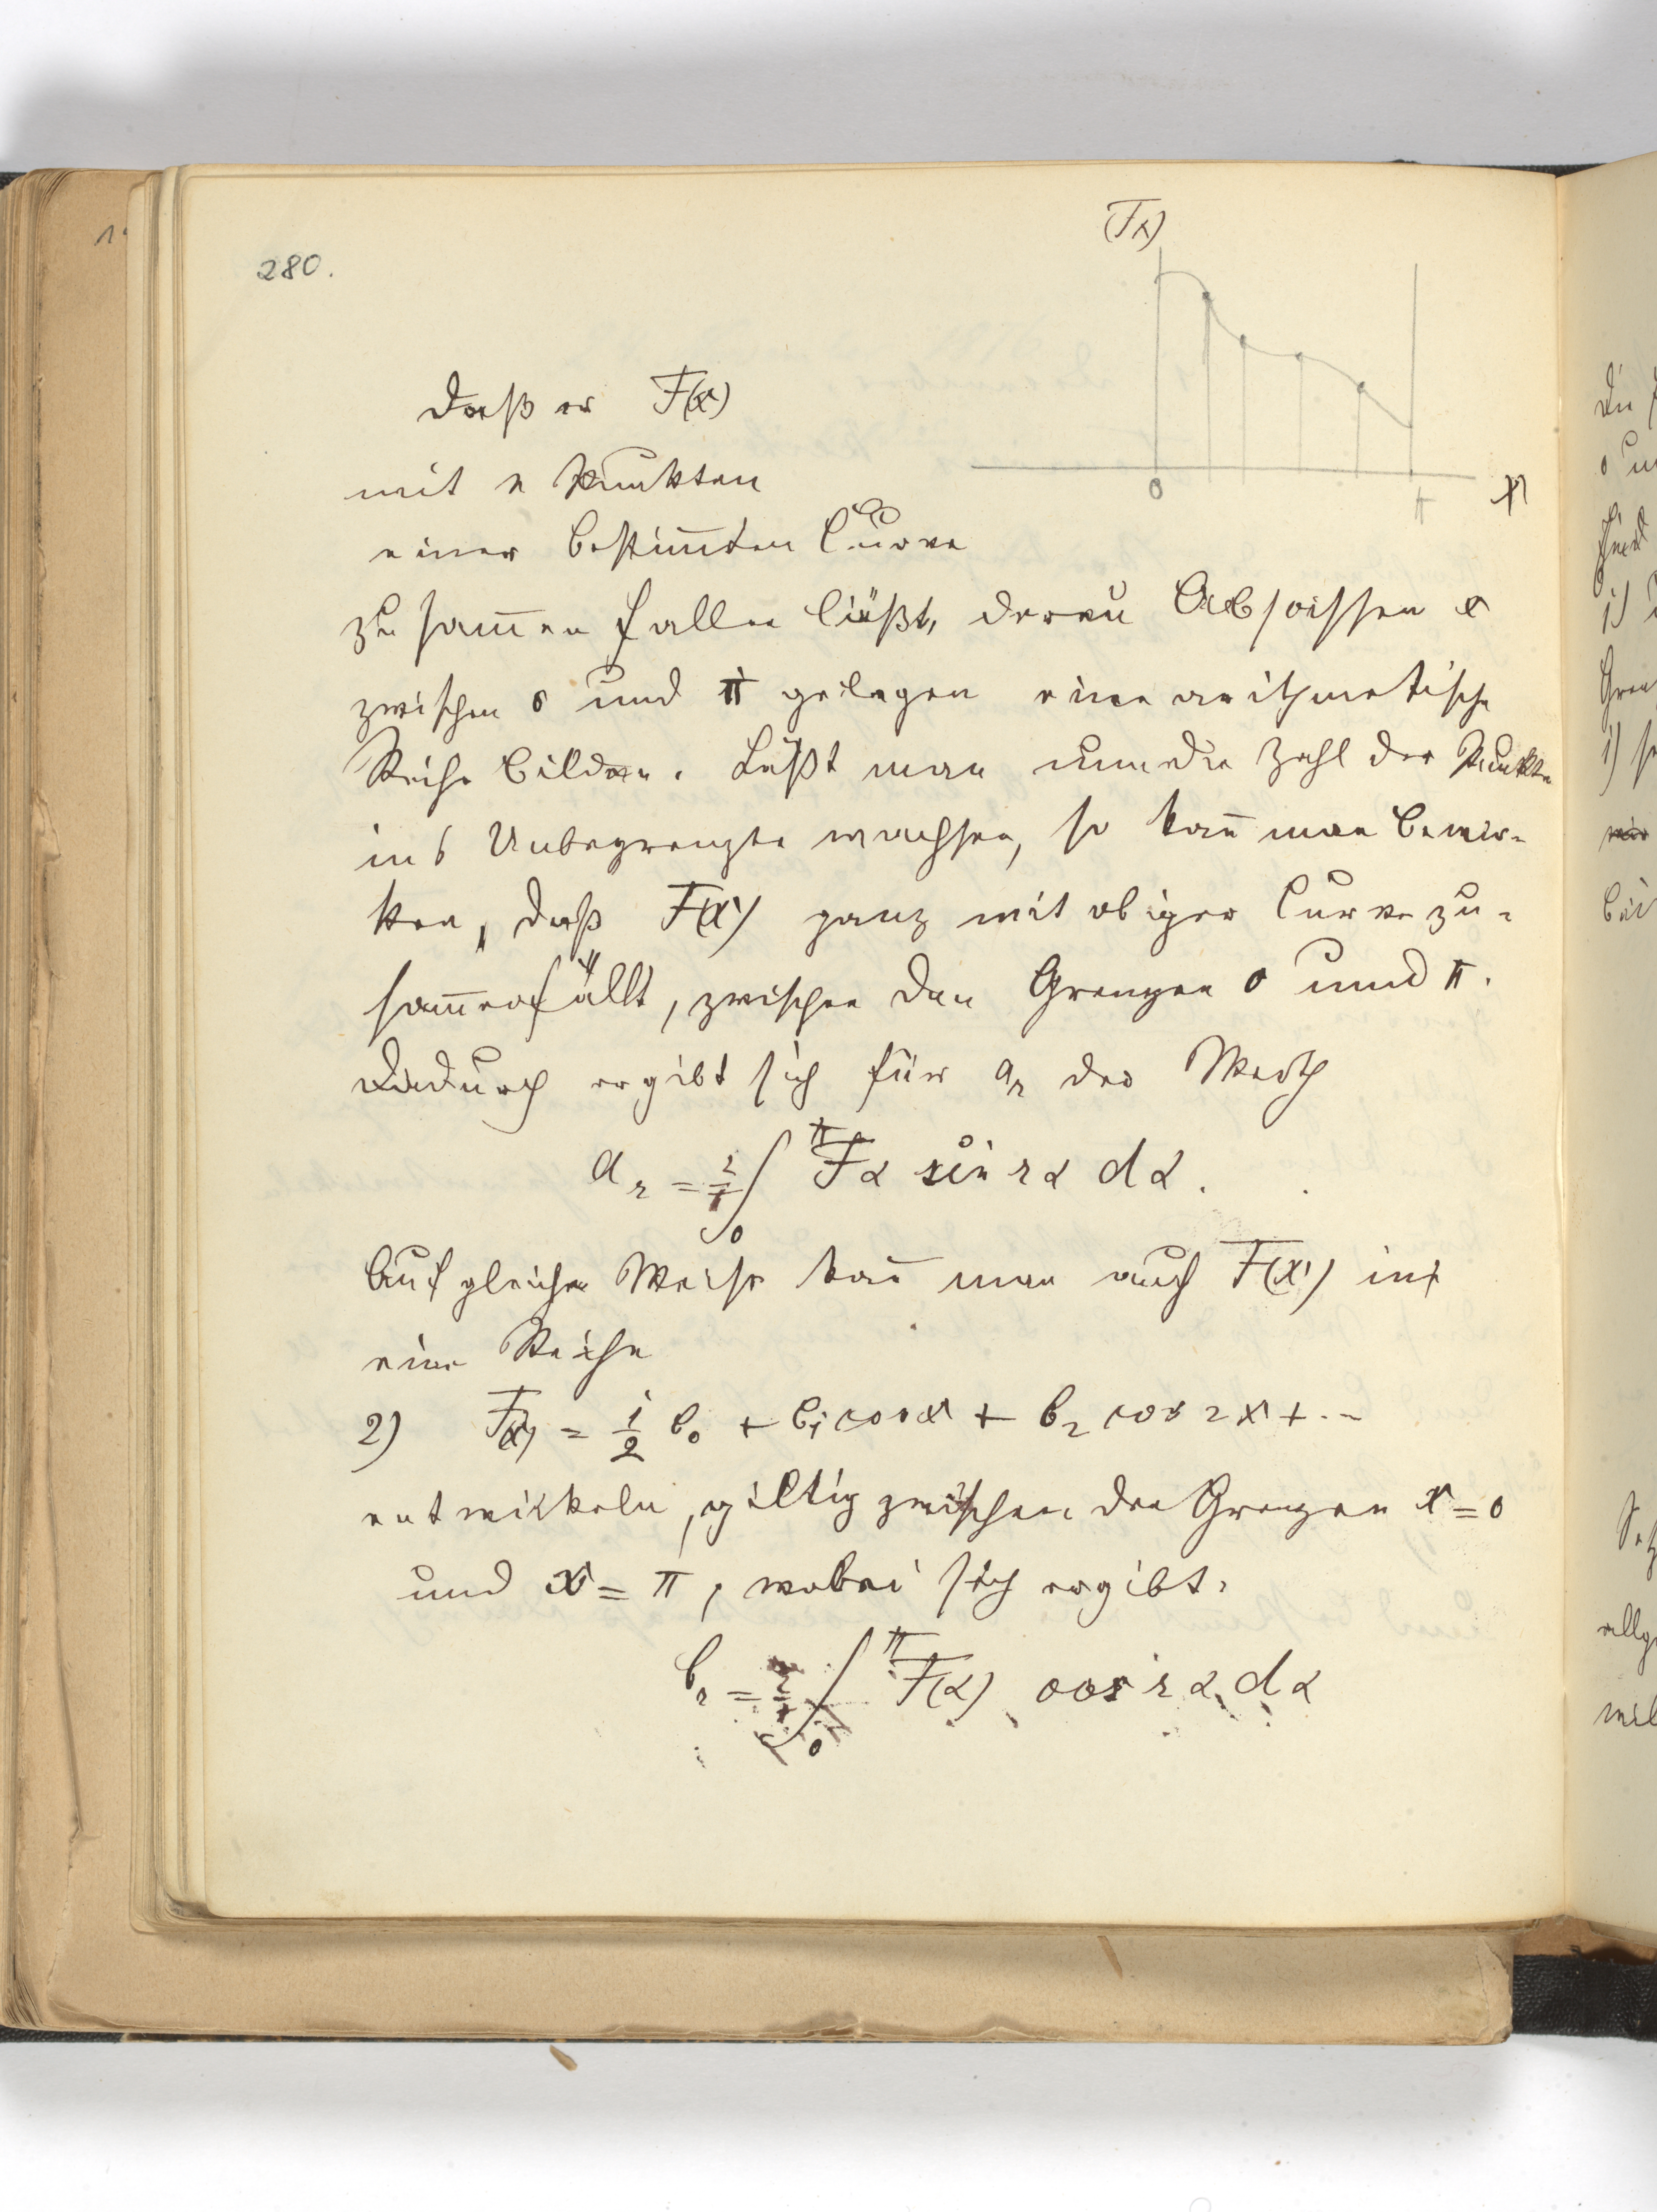 280.
F(x)
0 π x
daß er F(x)
mit n Punkten
einer bestim̄ten Curve
zusam̄en fallen läßt, deren Abscissen x
zwischen 0 und π gelegen eine arithmetische
Reihe bilden. Läßt man nun die Zahl der Punkte
ins Unbegrenzte wachsen, so kan̄ man bewir-
ken, daß F(x) ganz mit obiger Curve zu-
sam̄enfällt, zwischen den Grenzen 0 und π.
Dadurch ergibt sich für a_r der Werth
a_r = 2/π ∫_0^π Fα sin rα dα.
Auf gleiche Weise kan̄ man auch F(x) in
eine Reihe
2) F(x) = 1/2 b_0 + b_1 cos x + b_2 cos 2x + ..
entwickeln, giltig zwischen den Grenzen x = 0
und x = π, wobei sich ergibt.
b_r = 2/π ∫_0^π F(α) cos rα dα